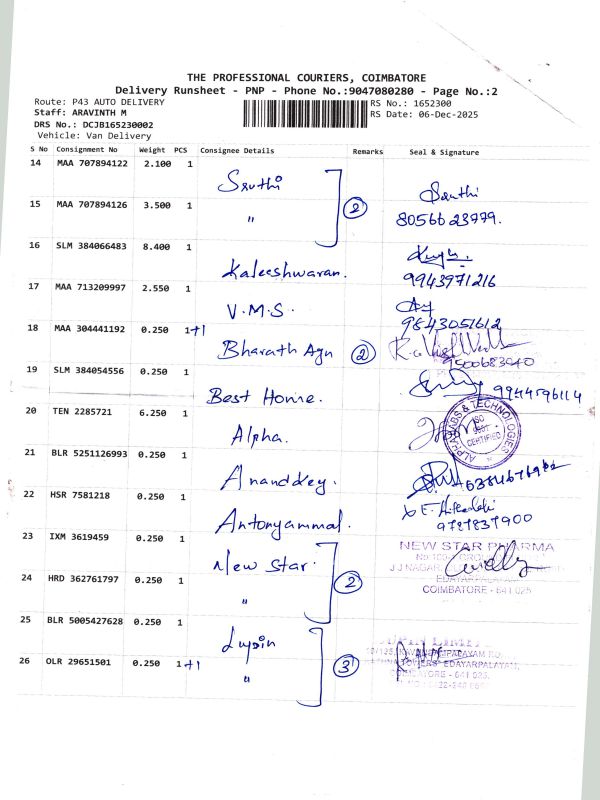 THE PROFESSIONAL COURIERS, COIMBATORE
Delivery Runsheet - PNP - Phone No.:9047080280 - Page No.:2
Route: P43 AUTO DELIVERY
Staff: ARAVINTH M
DRS No.: DCJB165230002
Vehicle: Van Delivery
RS No.: 1652300
RS Date: 06-Dec-2025
S No Consignment No Weight PCS Consignee Details Remarks Seal & Signature
14 MAA 707894122 2.100 1 Sruthi
15 MAA 707894126 3.500 1 " 2 8056623779.
16 SLM 384066483 8.400 1 Kaleeshwaran. 9943971216
17 MAA 713209997 2.550 1 V.M.S. 9843051612
18 MAA 304441192 0.250 1+1 Bharath Agn 2 9500683040
19 SLM 384054556 0.250 1 Best Home. 9944596114
20 TEN 2285721 6.250 1 Alpha. ALPHA LABS & TECHNOLOGIES ISO CERTIFIED
21 BLR 5251126993 0.250 1 Ananddey.
22 HSR 7581218 0.250 1 Antonyammal. 9787837900
23 IXM 3619459 0.250 1 New Star. NEW STAR PHARMA
24 HRD 362761797 0.250 1 " 2 COIMBATORE - 641 025
25 BLR 5005427628 0.250 1 Lupin
26 OLR 29651501 0.250 1+1 " 3 EDAYARPALAYAM, COIMBATORE - 641 025.